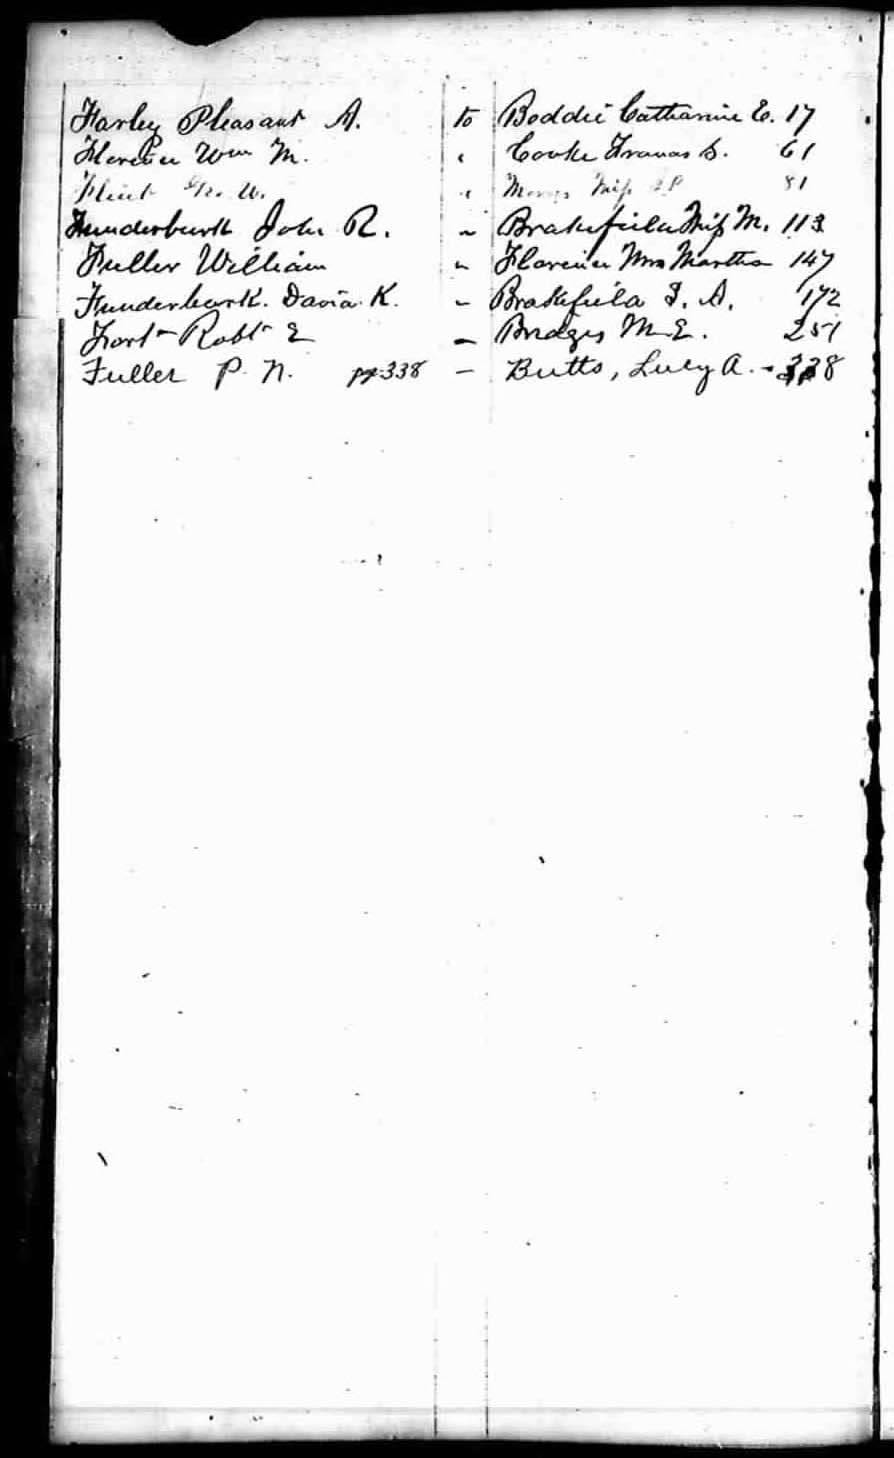 Farley Pleasant A. to Boddie Catharine E. 17
Florence Wm M. " Cooke Frances S. 61
Flint W. " Miss 81
Funderburk John R. " Brakefield Miss M. 113
Fuller William " Florence Mrs Martha 147
Funderburk. David K. " Brakefield S. A. 172
Fort Robt E " Bridges M E. 251
Fuller P. N. pp 338 — Butts, Lucy A. - 338